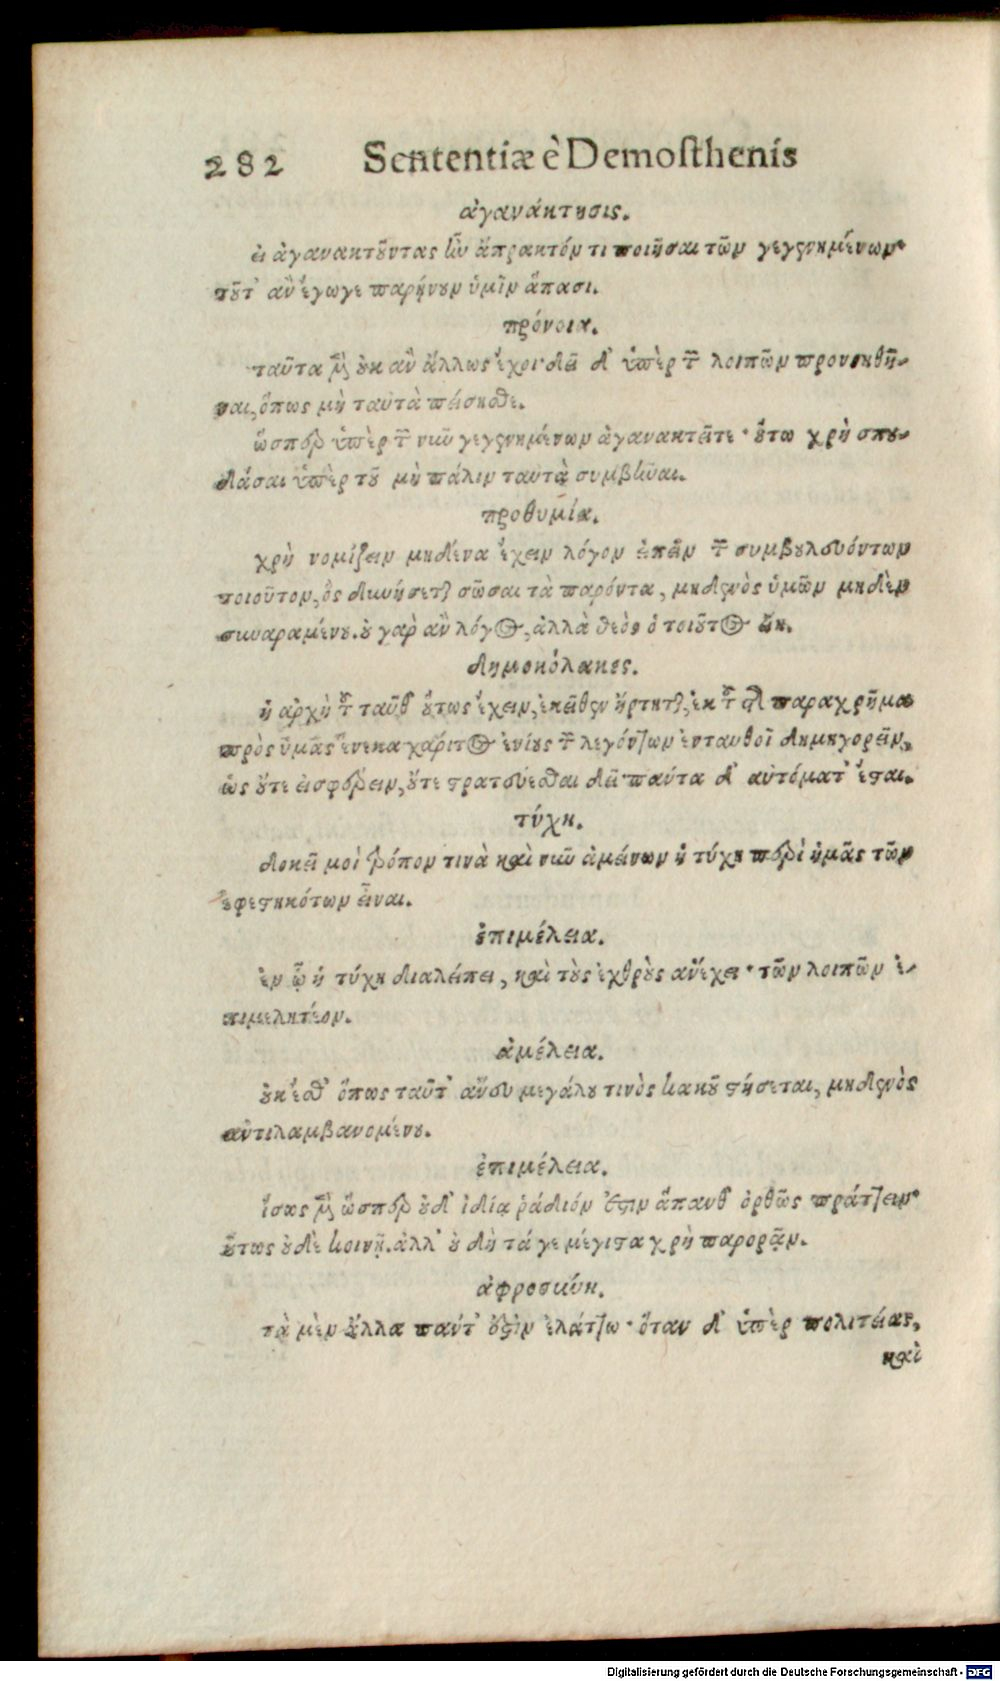 282 Sententiæ è Demosthenis
ἀγανάκτησις.
εἰ ἀγανακτοῦντας ἦν ἄπρακτόν τι ποιῆσαι τῶν γεγενημένων·
τοῦτ' ἂν ἔγωγε παρῄνουν ὑμῖν ἅπασι.
πρόνοια.
ταῦτα μὲν οὐκ ἂν ἄλλως ἔχοι· δεῖ δ' ὑπὲρ τῶν λοιπῶν προνοηθῆ-
ναι, ὅπως μὴ ταυτὰ πείσησθε.
ὥσπερ ὑπὲρ τῶν νῦν γεγενημένων ἀγανακτεῖτε· οὕτω χρὴ σπου-
δάσαι ὑπὲρ τοῦ μὴ πάλιν ταυτὰ συμβῆναι.
προθυμία.
χρὴ νομίζειν μηδένα ἔχειν λόγον εἰπεῖν τῶν συμβουλευόντων
τοιοῦτον, ὃς δυνήσεται σῶσαι τὰ παρόντα, μηδενὸς ὑμῶν μηδὲν
συναραμένου. οὐ γὰρ ἂν λόγος, ἀλλὰ θεὸς ὁ τοιοῦτος εἴη.
δημοκόλακες.
ἡ ἀρχὴ τοῦ ταῦθ' οὕτως ἔχειν, ἐκεῖθεν ἤρτηται, ἐκ τοῦ τῆς παραχρῆμα
πρὸς ὑμᾶς ἕνεκα χάριτος ἐνίους τῶν λεγόντων ἐνταυθοῖ δημηγορεῖν,
ὡς οὔτε εἰσφέρειν, οὔτε στρατεύεσθαι δεῖ· πάντα δ' αὐτόματ' ἔσται.
τύχη.
δοκεῖ μοὶ τρόπον τινὰ καὶ νῦν ἀμείνων ἡ τύχη περὶ ἡμᾶς τῶν
ἐφεστηκότων εἶναι.
ἐπιμέλεια.
ἐν ᾧ ἡ τύχη διαλείπει, καὶ τοὺς ἐχθροὺς ἀνέχει· τῶν λοιπῶν ἐ-
πιμελητέον.
ἀμέλεια.
οὐκ ἔσθ' ὅπως ταῦτ' ἄνευ μεγάλου τινὸς κακοῦ στήσεται, μηδενὸς
ἀντιλαμβανομένου.
ἐπιμέλεια.
ἴσως μὲν ὥσπερ οὐδ' ἰδίᾳ ῥάδιόν ἐστιν ἅπανθ' ὀρθῶς πράττειν·
οὕτως οὐδὲ κοινῇ. ἀλλ' οὐ δὴ τά γε μέγιστα χρὴ παρορᾷν.
ἀφροσύνη.
τὰ μὲν ἄλλα πάντ' ἐστὶν ἐλάττω· ὅταν δ' ὑπὲρ πολιτείας,
καὶ
Digitalisierung gefördert durch die Deutsche Forschungsgemeinschaft - DFG